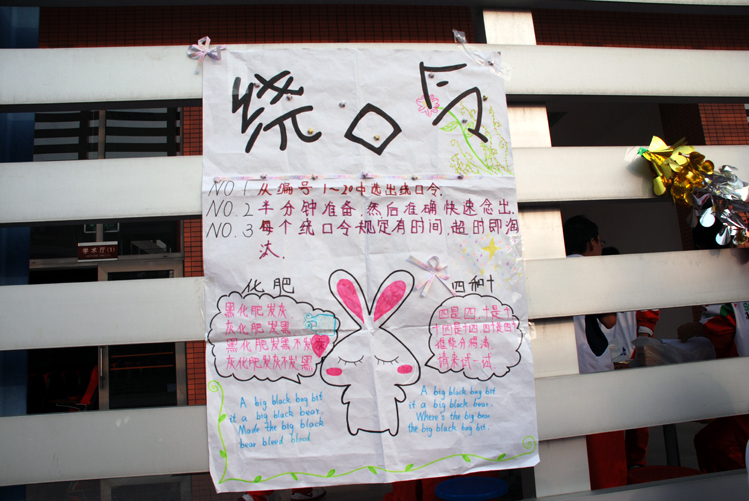 绕口令
NO.1 从编号1~20中选出绕口令.
NO.2 半分钟准备,然后准确快速念出.
NO.3 每个绕口令规定有时间,超时即淘
汰.
化肥
黑化肥发灰
灰化肥发黑
黑化肥发黑不发灰
灰化肥发灰不发黑
四和十
四是四,十是十
十四是十四 四十是四十
谁能分清楚
请来试一试
A big black bug bit
it a big black bear.
Made the big black
bear bleed blood
A big black bug bit
it a big black bear.
Where's the big bear
the big black bug bit.